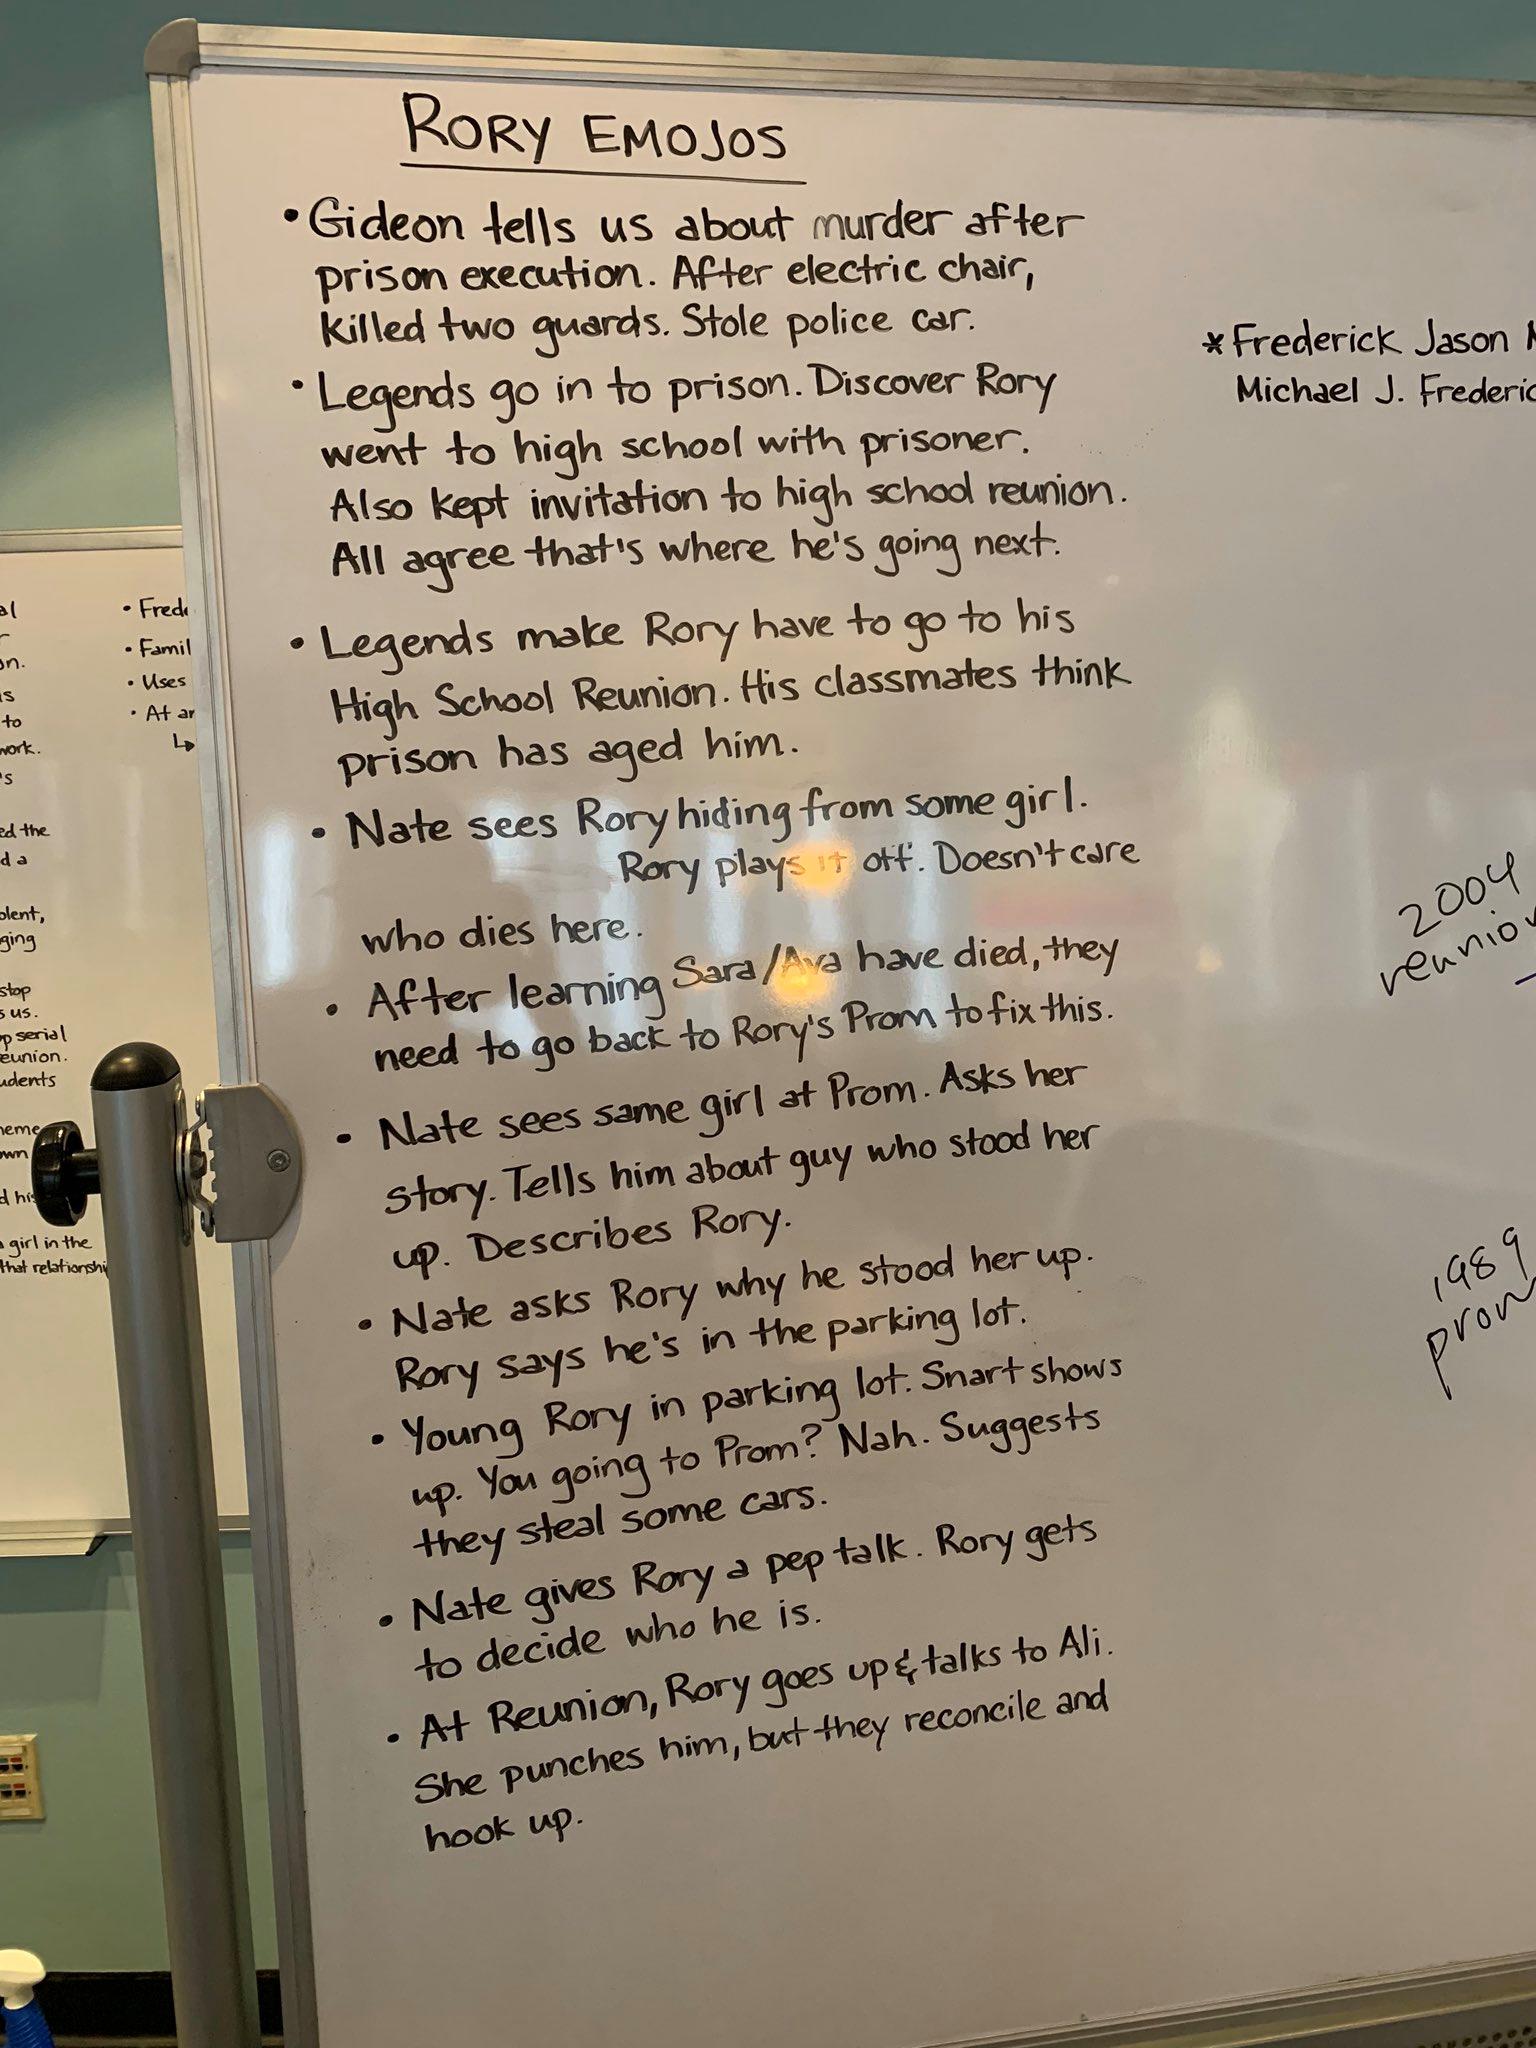 RORY EMOJOS
• Gideon tells us about murder after
prison execution. After electric chair,
killed two guards. Stole police car.
• Legends go in to prison. Discover Rory
went to high school with prisoner.
Also kept invitation to high school reunion.
All agree that's where he's going next.
• Legends make Rory have to go to his
High School Reunion. His classmates think
prison has aged him.
• Nate sees Rory hiding from some girl.
Rory plays it off. Doesn't care
who dies here.
• After learning Sara/Ava have died, they
need to go back to Rory's Prom to fix this.
• Nate sees same girl at Prom. Asks her
story. Tells him about guy who stood her
up. Describes Rory.
• Nate asks Rory why he stood her up.
Rory says he's in the parking lot.
• Young Rory in parking lot. Snart shows
up. You going to Prom? Nah. Suggests
they steal some cars.
• Nate gives Rory a pep talk. Rory gets
to decide who he is.
• At Reunion, Rory goes up & talks to Ali.
She punches him, but they reconcile and
hook up.
* Frederick Jason
Michael J.
2004
reunion
1989
prom
• Uses
• At
↳
to
work.
's
ed the
d a
stop
us.
serial
girl in the
that